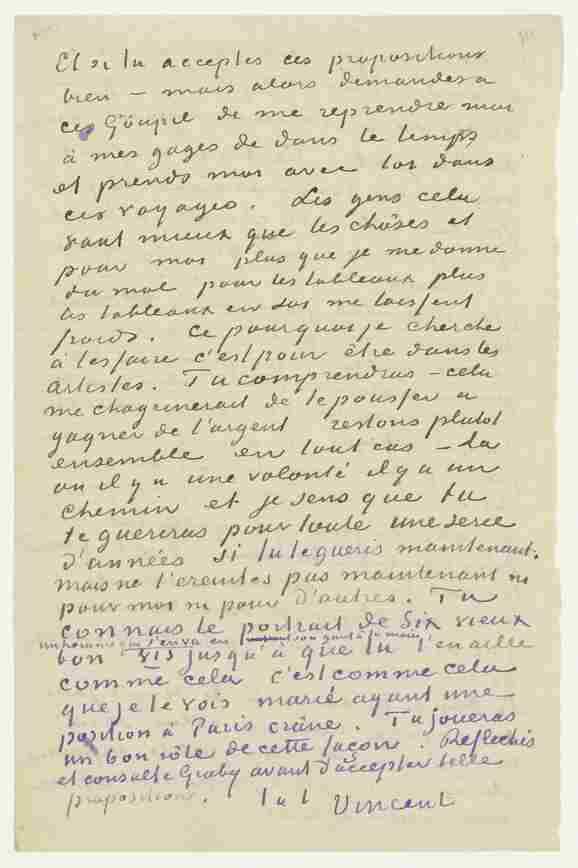 Et si tu acceptes ces propositions
bien – mais alors demandes à
ces Goupil de me reprendre moi
à mes gages de dans le temps
et prends moi avec toi dans
ces voyages. Les gens cela
vaut mieux que les choses et
pour moi plus que je me donne
du mal pour les tableaux plus
les tableaux en soi me laissent
froids. Ce pourquoi je cherche
à les faire c'est pour être dans les
artistes. Tu comprendras – cela
me chagrinerait de te pousser a
gagner de l'argent restons plutot
ensemble en tout cas – là
ou il y a une volonté il y a un
chemin et je sens que tu
te guériras pour toute une serie
d'années si tu te gueris maintenant.
mais ne t'ereintes pas maintenant ni
pour moi ni pour d'autres. Tu
connais le portrait de Six vieux
un homme qui s'en va en son gant à la main
bon vis jusqu'à que tu t'en ailles
comme cela c'est comme cela
que je te vois marié ayant une
position à Paris crâne. Tu joueras
un bon rôle de cette façon. Reflechis
et consulte Gruby avant d'accepter telle
proposition. t. à t. Vincent